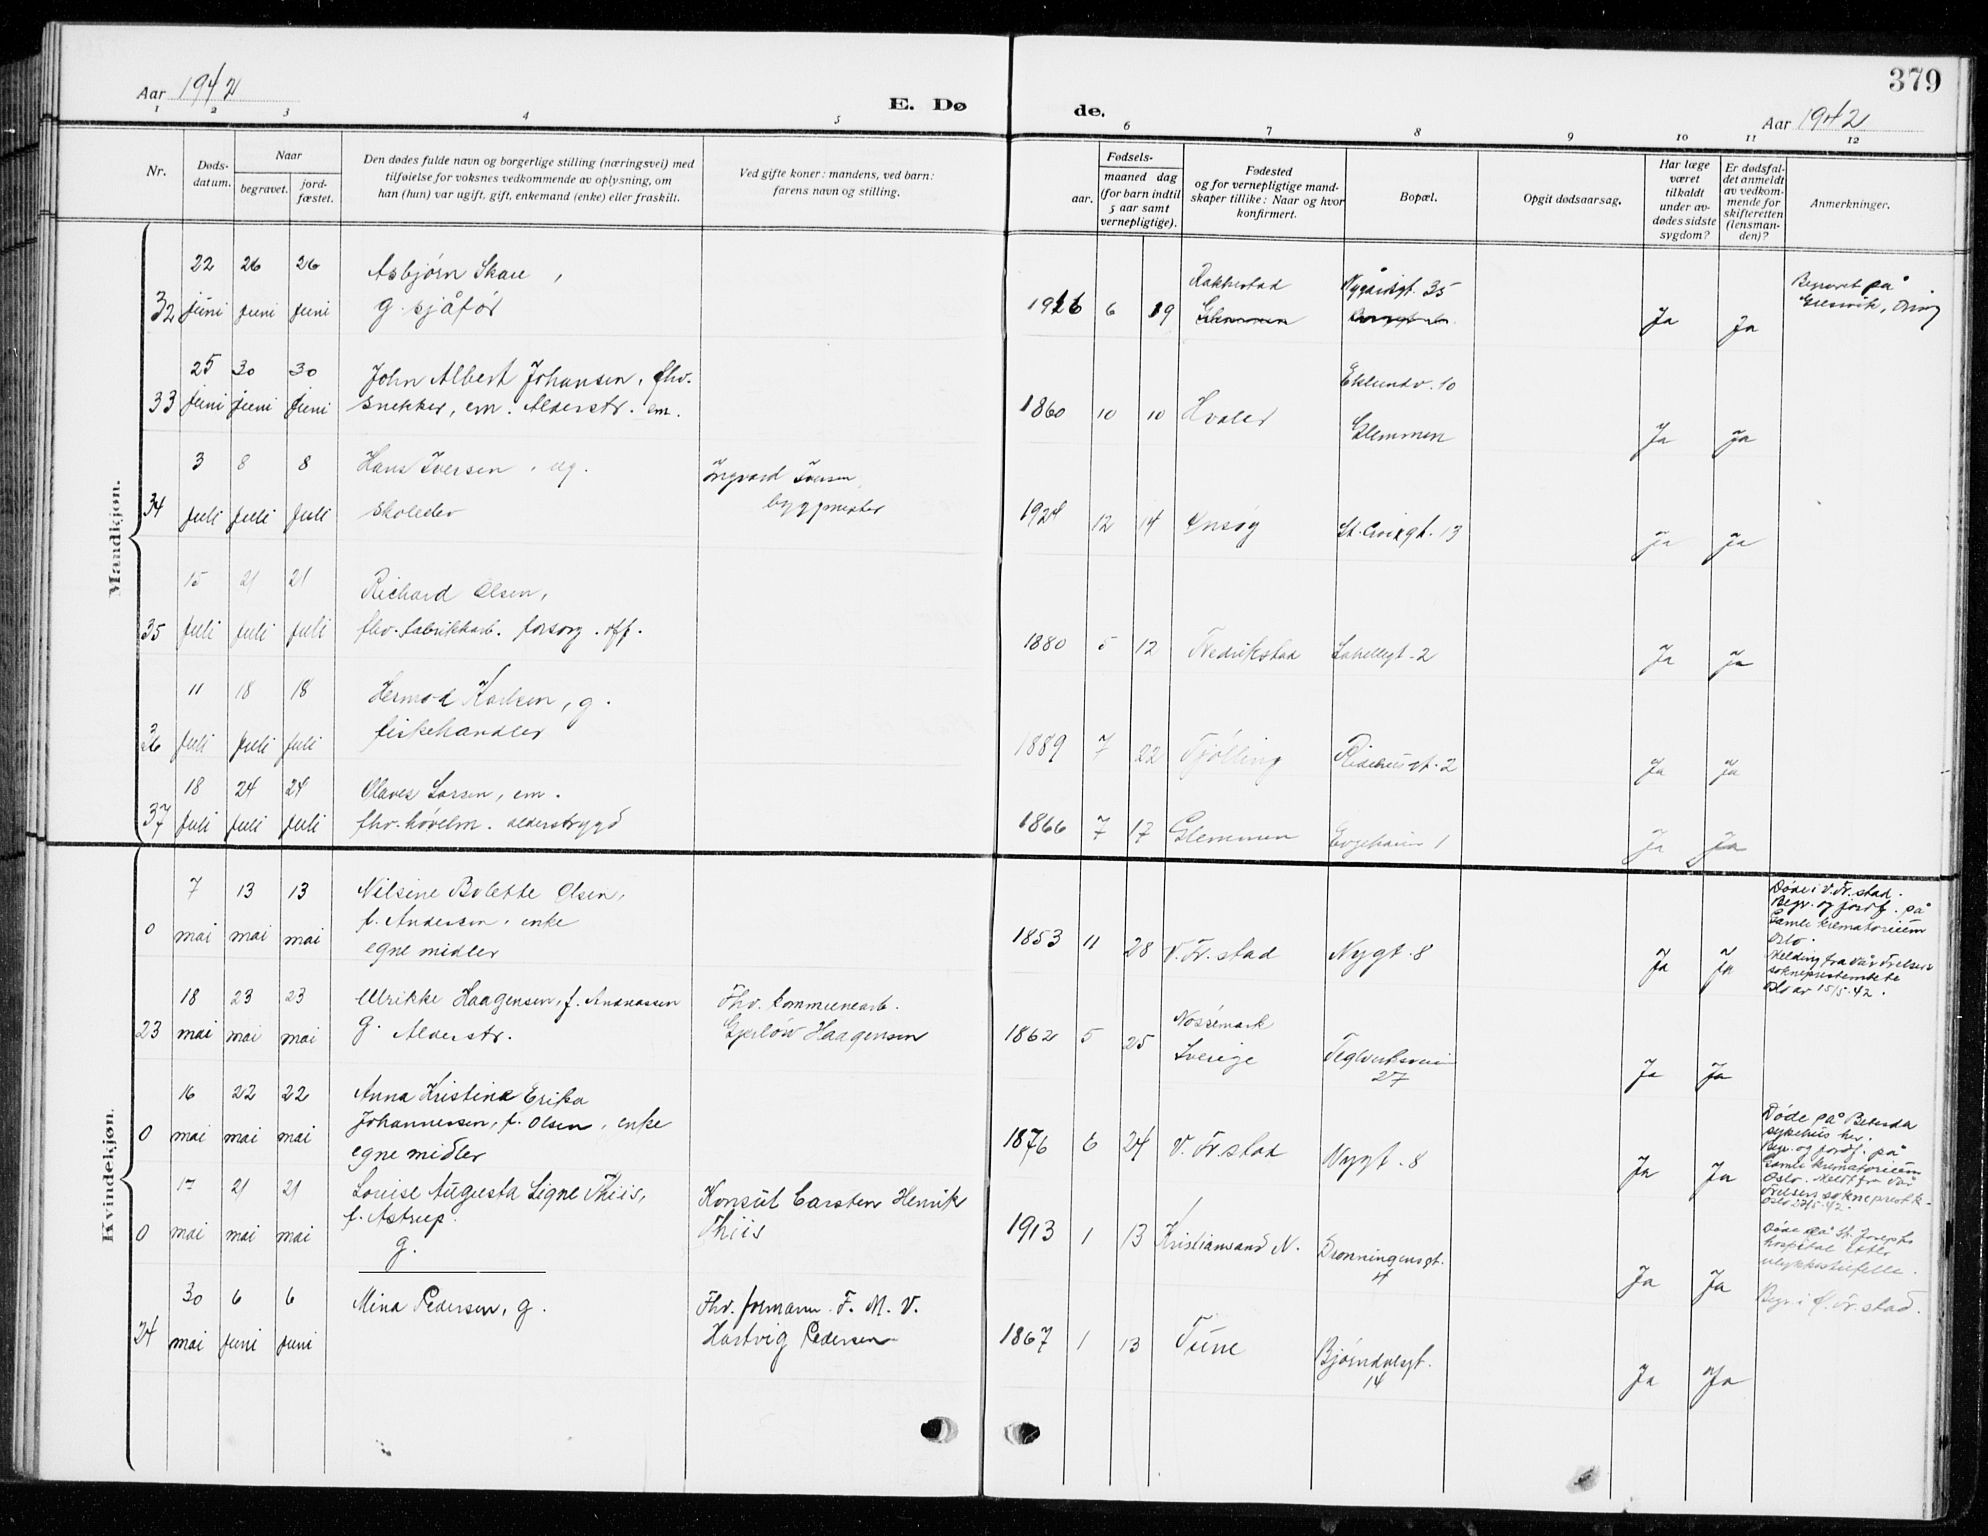 379
Aar 1942
E. Dø
de.
Aar 1942
1 2 3 4 5 6 7 8 9 10 11 12
Nr.
Døds-
datum.
Naar
begravet.
jord-
fæstet.
Den dødes fulde navn og borgerlige stilling (næringsvei) med
tilføielse for voksnes vedkommende av oplysning, om
han (hun) var ugift, gift, enkemand (enke) eller fraskilt.
Ved gifte koner: mandens, ved barn:
farens navn og stilling.
Fødsels-
aar.
maaned dag
(for barn indtil
5 aar samt
vernepligtige).
Fødested
og for vernepligtige mand-
skaper tillike: Naar og hvor
konfirmert.
Bopæl.
Opgit dødsaarsag.
Har læge
været
tilkaldt
under av-
dødes sidste
sygdom?
Er dødsfal-
det anmeldt
av vedkom-
mende for
skifteretten
(lensman-
den)?
Anmerkninger.
Mandkjøn.
22 26 26 Asbjørn Skau, Rakkestad Nygårdsgt. 35 Begravet på
32 juni juni juni g. sjåfør 1916 6 19 Glemmen Ja Ja Gressvik,
25 30 30 John Albert Johansen, fhv. Eklundv. 10
33 juni juni juni snekker, em. Alderstr. em. 1860 10 10 Hvaler Glemmen Ja Ja
3 8 8 Hans Iversen, ug. Ingvard Iversen,
34 juli juli juli skoleelev byggmester 1924 12 14 Onsøy St. Croixgt. 13 Ja Ja
15 21 21 Richard Olsen,
35 juli juli juli fhv. fabrikkarb. forsorg. off. 1880 5 12 Fredrikstad 2 Ja Ja
11 18 18 Hermod Karlsen, g.
36 juli juli juli fiskehandler 1889 7 22 Tjølling Ridehusgt. 2 Ja Ja
18 24 24 Olaves Larsen, em.
37 juli juli juli fhv. høvelm. alderstrygd 1866 7 17 Glemmen Evjehaven 1 Ja Ja
Kvindekjøn.
7 13 13 Nilsine Bolette Olsen,
f. Andersen, enke
0 mai mai mai egne midler 1853 11 28 V. Fr. stad Nygt. 8 Ja Ja
Døde i V. Fr. stad.
Begr. og jordf. på
Gamle krematorium
Oslo.
Melding fra Vår Frelsers
sokneprestembete
Oslo av 15/5-42.
18 23 23 Ulrikke Haagensen, f. Andreassen Fhv. kommunearb.
23 mai mai mai g. Alderstr. Gjerløw Haagensen 1862 5 25 Nössemark
Sverige Teglverksveien
27 Ja Ja
16 22 22 Anna Kristine Erika
0 mai mai mai Johannessen, f. Olsen, enke
egne midler 1876 6 24 V. Fr. stad Nygt. 8 Ja Ja
Døde på Betesda
sykehus her.
Begr. og jordf. på
Gamle krematorium
Oslo. Meldt fra Vår
Frelsers sokneprestk.
Oslo 22/5-42.
17 21 21 Louise Augusta Signe Thiis, Konsul Carsten Henrik
0 mai mai mai f. Astrup. Thiis
g. 1913 1 13 Kristiansand N. Dronningensgt.
4 Ja Ja
Døde på St. Josephs
hospital etter
ulykkestilfelle.
Begr. i Ø. Fr. stad.
30 6 6 Mina Pedersen, g. Fhv. formann F. M. V.
24 mai juni juni Hartvig Pedersen 1867 1 13 Tune Bjørndalsgt.
14 Ja Ja